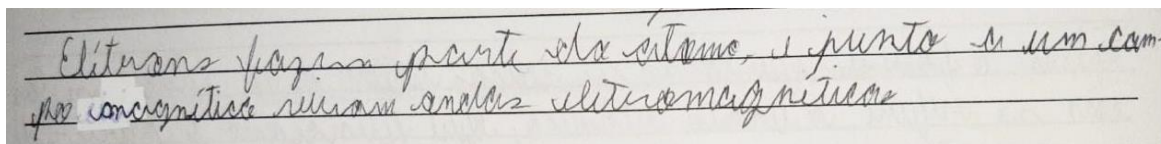 Elétrons fazem parte do átomo, e junto a um cam-
po magnético viram ondas eletromagnéticas